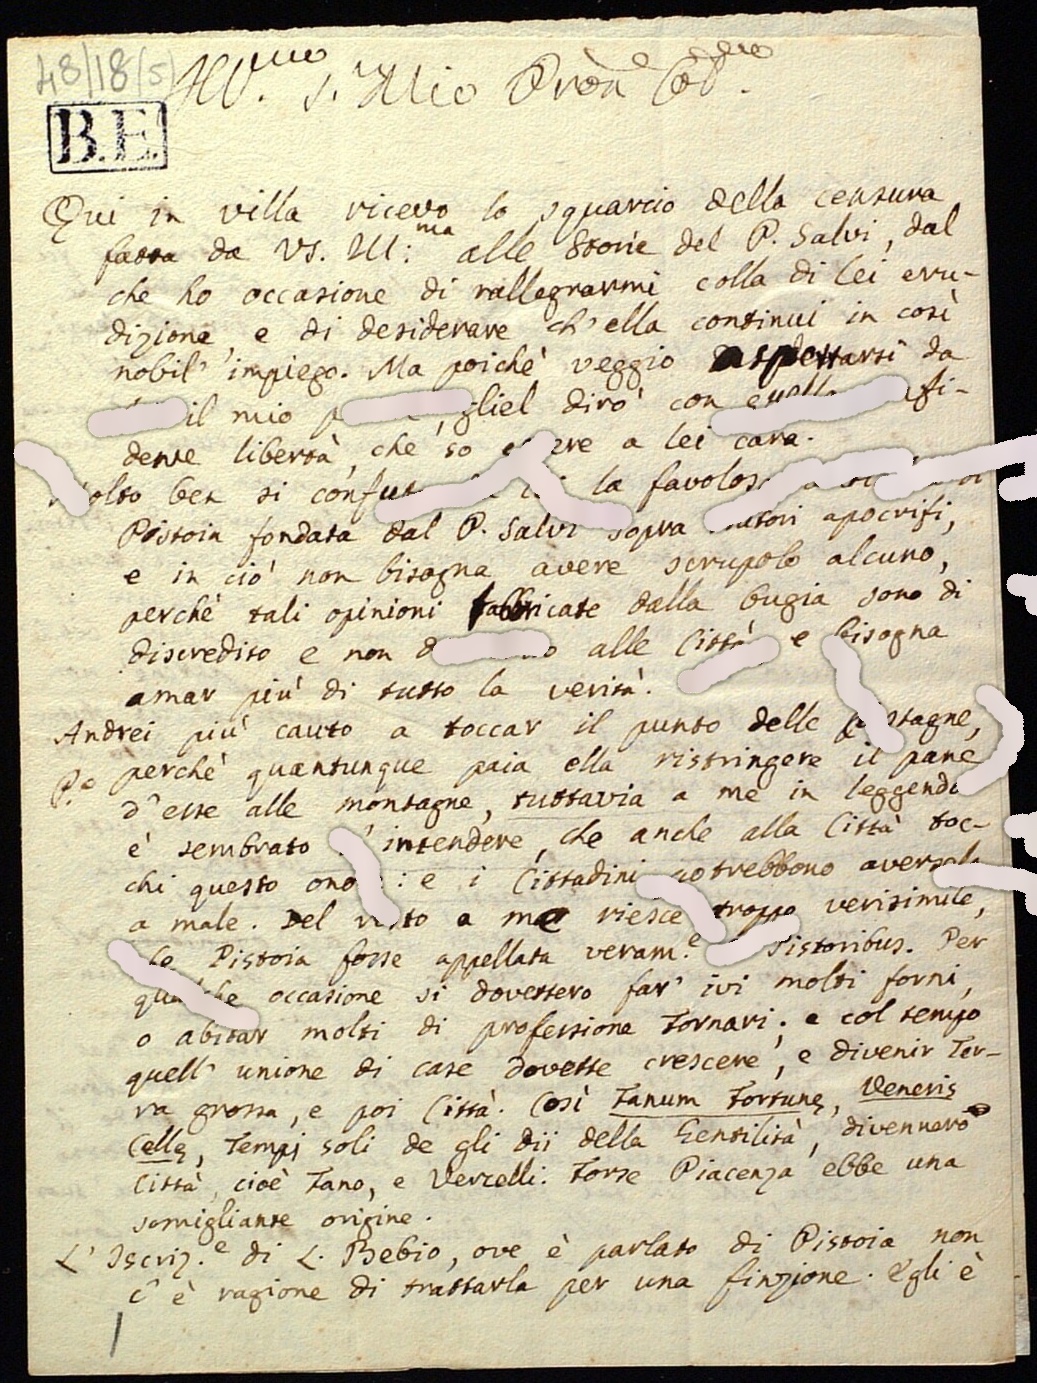 48/18(5)
Ill.mo S. Mio Pròn.e Col.mo
B.E.
Qui in villa ricevo lo squarcio della censura
fatta da VS. Ill:ma alle Storie del P. Salvi, dal
che ho occasione di rallegrarmi colla di lei eru-
dizione, e di desiderare ch'ella continui in così
nobil' impiego. Ma poichè veggio aspettarsi da
il mio gliel dirò con
dente libertà, che so a lei cara.
ben si la
Pistoia fondata dal P. Salvi sopra apocrifi,
e in ciò non bisogna avere scrupolo alcuno,
perchè tali opinioni fabbricate dalla bugia sono di
discredito e non alle Città e bisogna
amar più di tutto la verità.
Andrei più cauto a toccar il punto delle
P.e perchè quantunque paia ella ristringere il pane
d'esse alle montagne, tuttavia a me in
è sembrato intendere, che anche alla Città toc-
chi questo : e i Cittadini potrebbono
a male. Del a me riesce troppo verisimile,
Pistoia fosse appellata veram.e Pistoribus. Per
occasione si dovettero far' ivi molti forni,
o abitar molti di professione Fornari; e col tempo
quell' unione di case dovette crescere, e divenir Ter-
ra grossa, e poi Città. Così Fanum Fortunę, Veneris
Cellę, Tempj soli de gli dii della Gentilità, divennero
Città, cioè Fano, e Vercelli. Forse Piacenza ebbe una
somigliante origine.
L' Iscriz.e di L. Bebio, ove è parlato di Pistoia, non
c' è ragione di trattarla per una finzione. Egli è